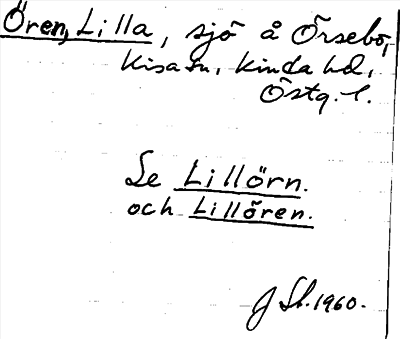 Ören, Lilla, sjö å Örsebo,
Kisa sn, Kinda hd,
Östg. l.
Se Lillörn.
och Lillören.
J Sl. 1960.